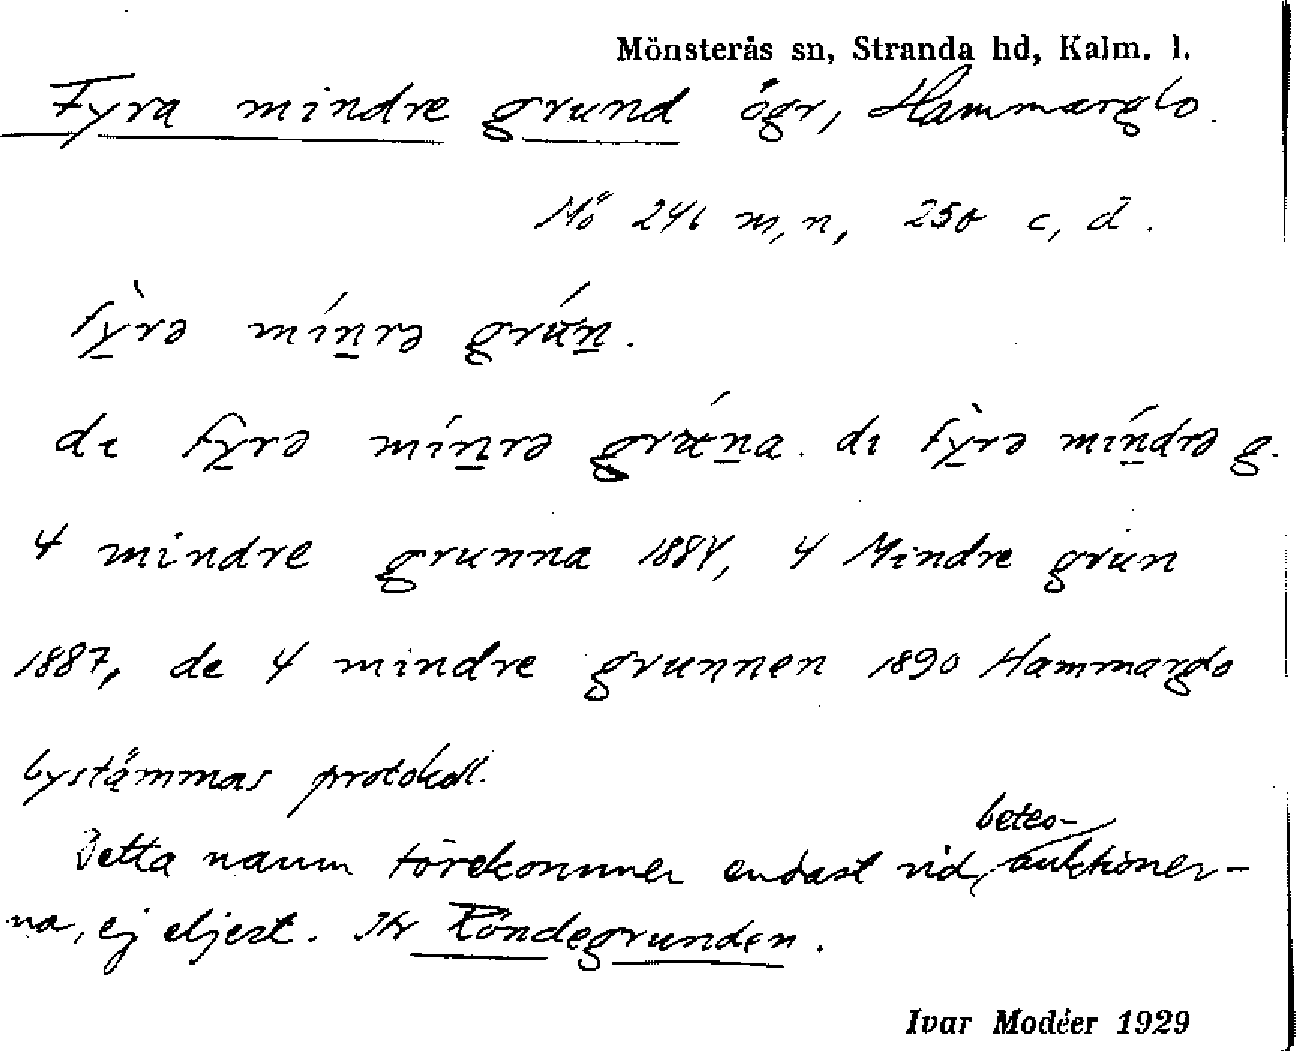 Mönsterås sn, Stranda hd, Kalm. l.
Fyra mindre grund ögr, Hammarglo.
Mö 246 m, n, 250 c, d.
fỳ̱rə míṉrə grúṉ.
de fỳ̱rə míṉrə grǽṉa. dı fỳ̱rə míṉdrə g.
4 mindre grunna 1884, 4 Mindre grun
1887, de 4 mindre grunnen 1890 Hammarglo
bystämmas protokoll.
Detta namn förekommer endast vid betes-auktioner-
na, ej eljest. Jfr Röndegrunden.
Ivar Modéer 1929